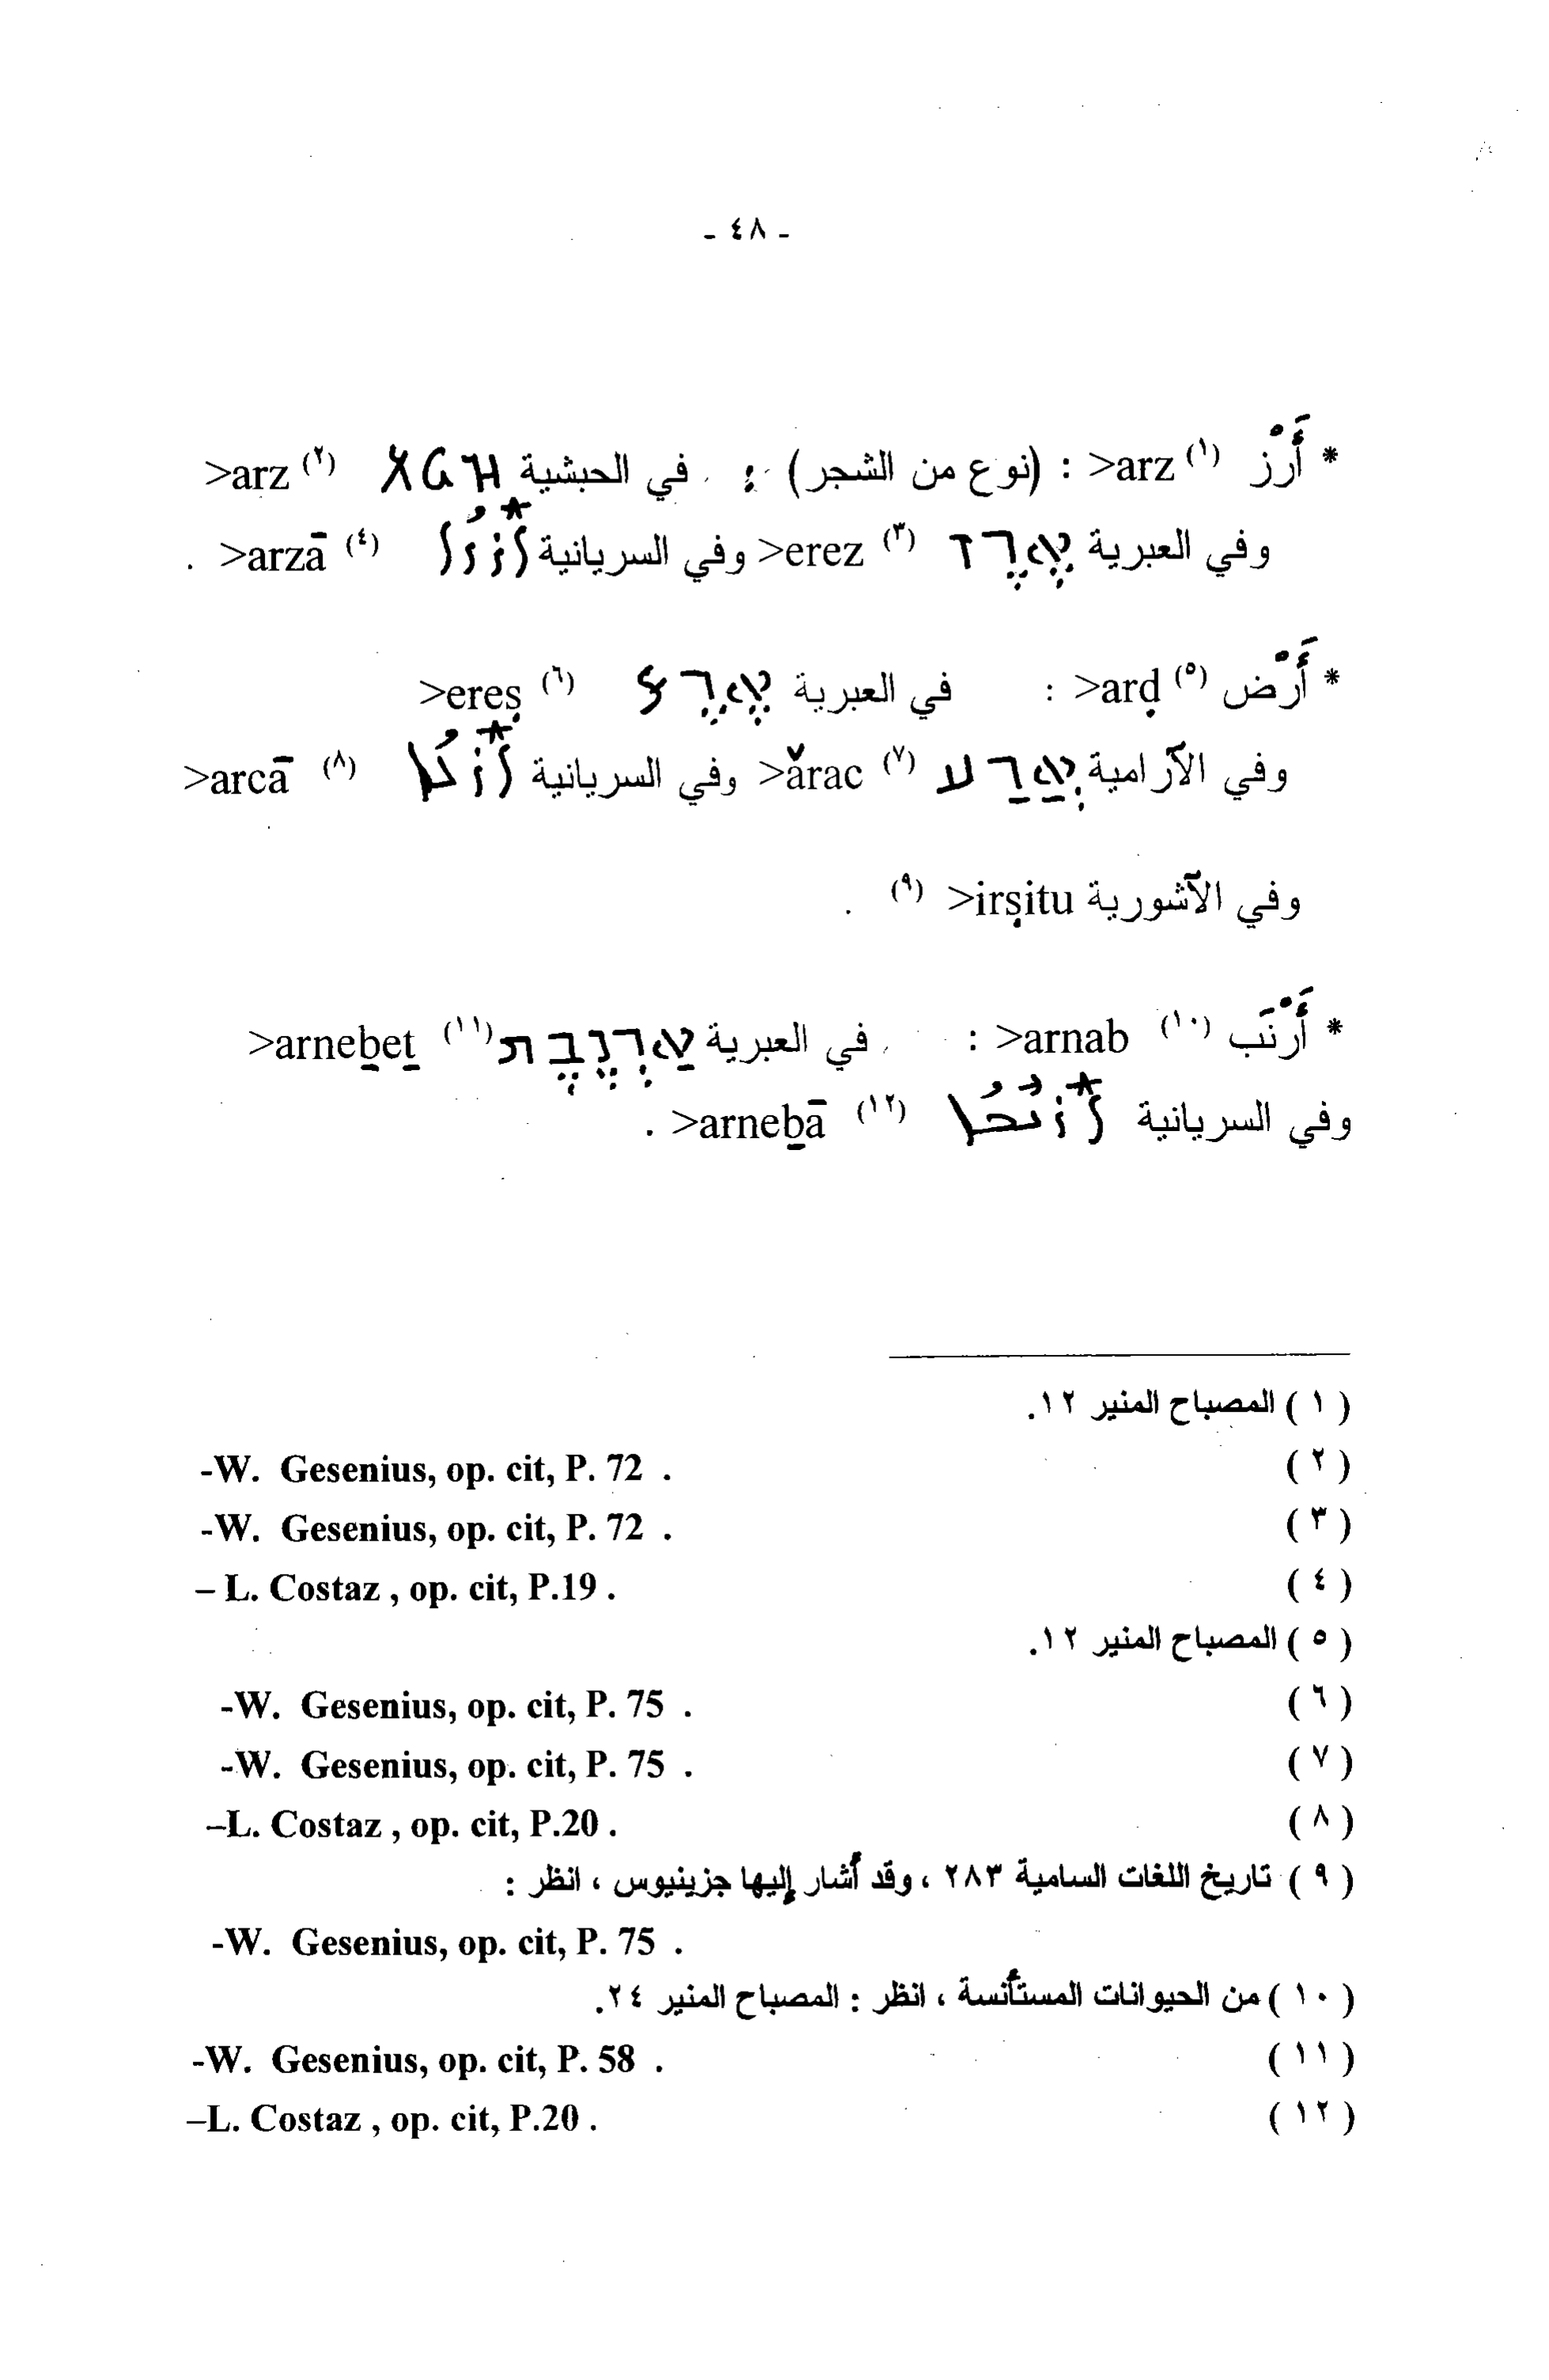 - ٤٨ -
* أَرْز (١) >arz : (نوع من الشجر) ؛ في الحبشية (٢) >arz
وفي العبرية אֶרֶז (٣) >erez وفي السريانية (٤) >arzā .
* أَرْض (٥) >arḍ : في العبرية אֶרֶץ (٦) >ereṣ
وفي الآرامية אֲרַע (٧) >ărac وفي السريانية (٨) >arcā
وفي الآشورية >irṣitu (٩) .
* أَرْنَب (١٠) >arnab : في العبرية אַרְנֶבֶת (١١) >arneḇeṯ
وفي السريانية (١٢) >arneḇā .
(١) المصباح المنير ١٢.
(٢) -W. Gesenius, op. cit, P. 72 .
(٣) -W. Gesenius, op. cit, P. 72 .
(٤) – L. Costaz , op. cit, P.19 .
(٥) المصباح المنير ١٢.
(٦) -W. Gesenius, op. cit, P. 75 .
(٧) -W. Gesenius, op. cit, P. 75 .
(٨) –L. Costaz , op. cit, P.20 .
(٩) تاريخ اللغات السامية ٢٨٣ ، وقد أشار إليها جزينيوس ، انظر :
-W. Gesenius, op. cit, P. 75 .
(١٠) من الحيوانات المستأنسة ، انظر : المصباح المنير ٢٤.
(١١) -W. Gesenius, op. cit, P. 58 .
(١٢) –L. Costaz , op. cit, P.20 .